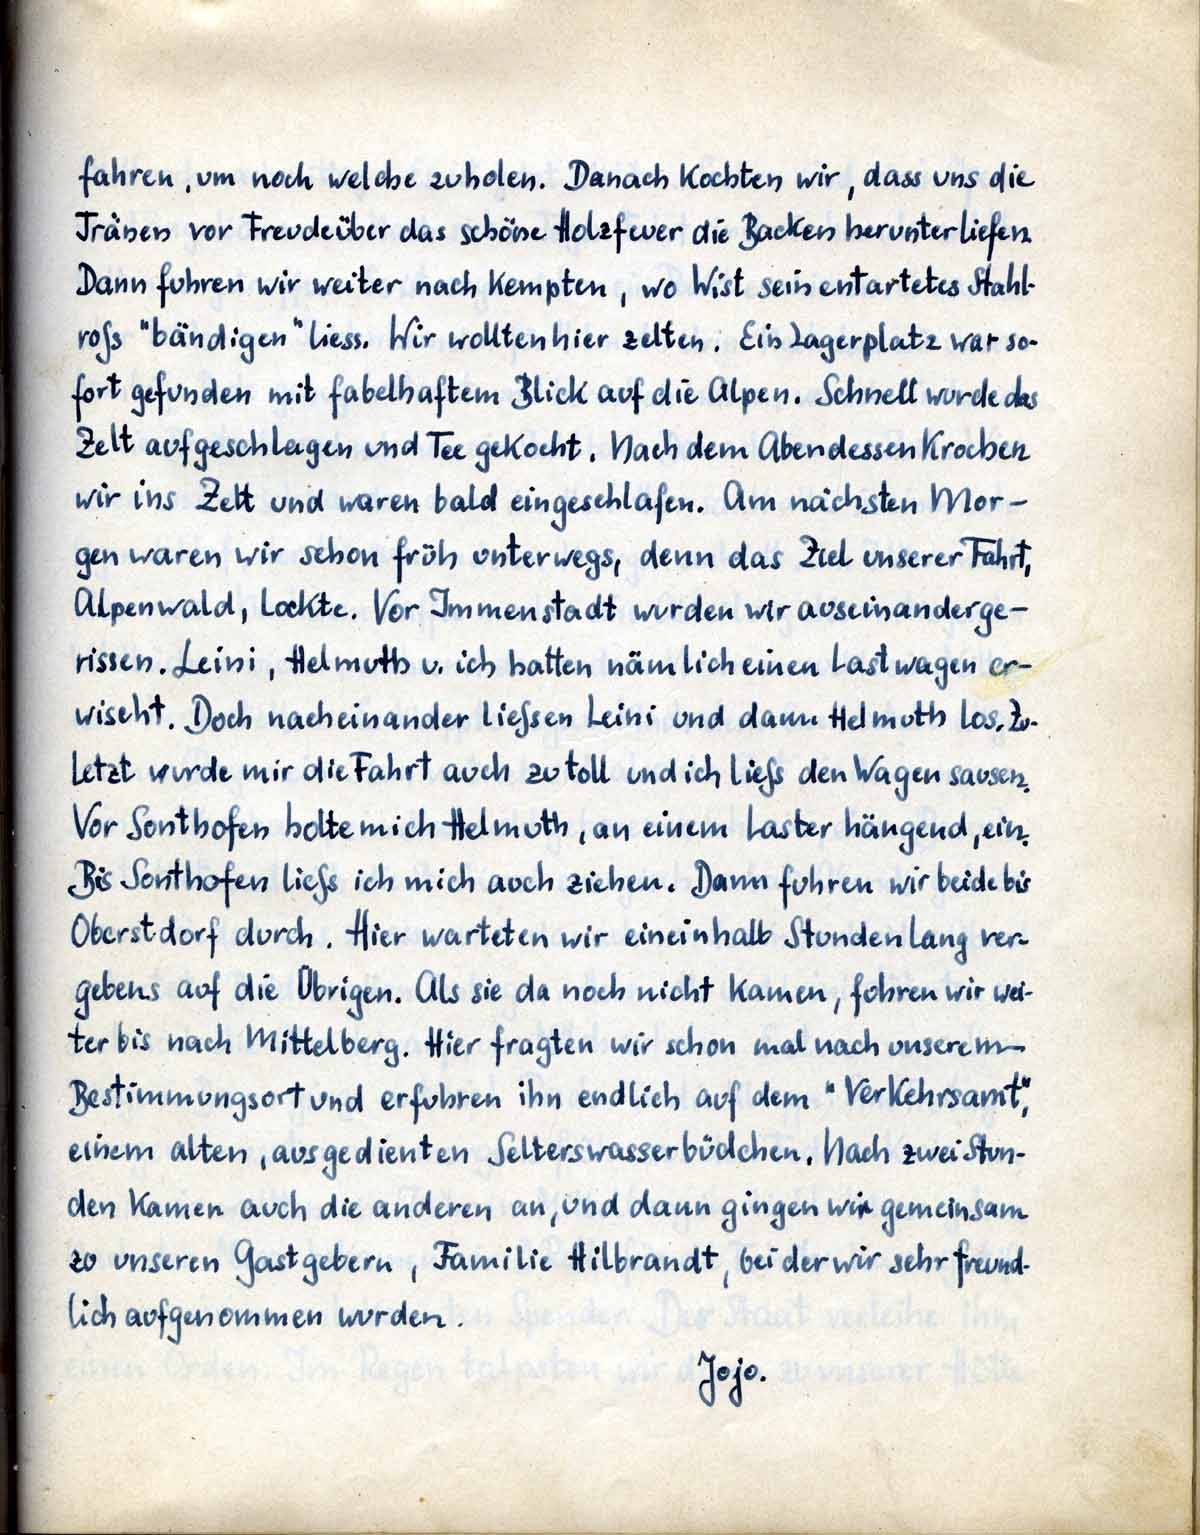 fahren, um noch welche zuholen. Danach kochten wir, dass uns die
Tränen vor Freude über das schöne Holzfeuer die Backen herunterliefen.
Dann fuhren wir weiter nach Kempten, wo Wist sein entartetes Stahl-
roß "bändigen" liess. Wir wollten hier zelten. Ein Lagerplatz war so-
fort gefunden mit fabelhaftem Blick auf die Alpen. Schnell wurde das
Zelt aufgeschlagen und Tee gekocht. Nach dem Abendessen krochen
wir ins Zelt und waren bald eingeschlafen. Am nächsten Mor-
gen waren wir schon früh unterwegs, denn das Ziel unserer Fahrt,
Alpenwald, lockte. Vor Immenstadt wurden wir auseinanderge-
rissen. Leini, Helmuth u. ich hatten nämlich einen Lastwagen er-
wischt. Doch nacheinanderließen Leini und dann Helmuth los. Zu-
letzt wurde mir die Fahrt auch zu toll und ich ließ den Wagen sausen.
Vor Sonthofen holte mich Helmuth, an einem Laster hängend, ein.
Bis Sonthofen ließ ich mich auch ziehen. Dann fuhren wir beide bis
Oberstdorf durch. Hier warteten wir eineinhalb Stunden lang ver-
gebens auf die Übrigen. Als sie da noch nicht kamen, fuhren wir wei-
ter bis nach Mittelberg. Hier fragten wir schon mal nach unserem
Bestimmungsort und erfuhren ihn endlich auf dem "Verkehrsamt",
einem alten, ausgedienten Selterswasserbüdchen. Nach zwei Stun-
den kamen auch die anderen an, und dann gingen wir gemeinsam
zu unseren Gastgebern, Familie Hilbrandt, bei der wir sehr freund-
lich aufgenommen wurden.
Jojo.